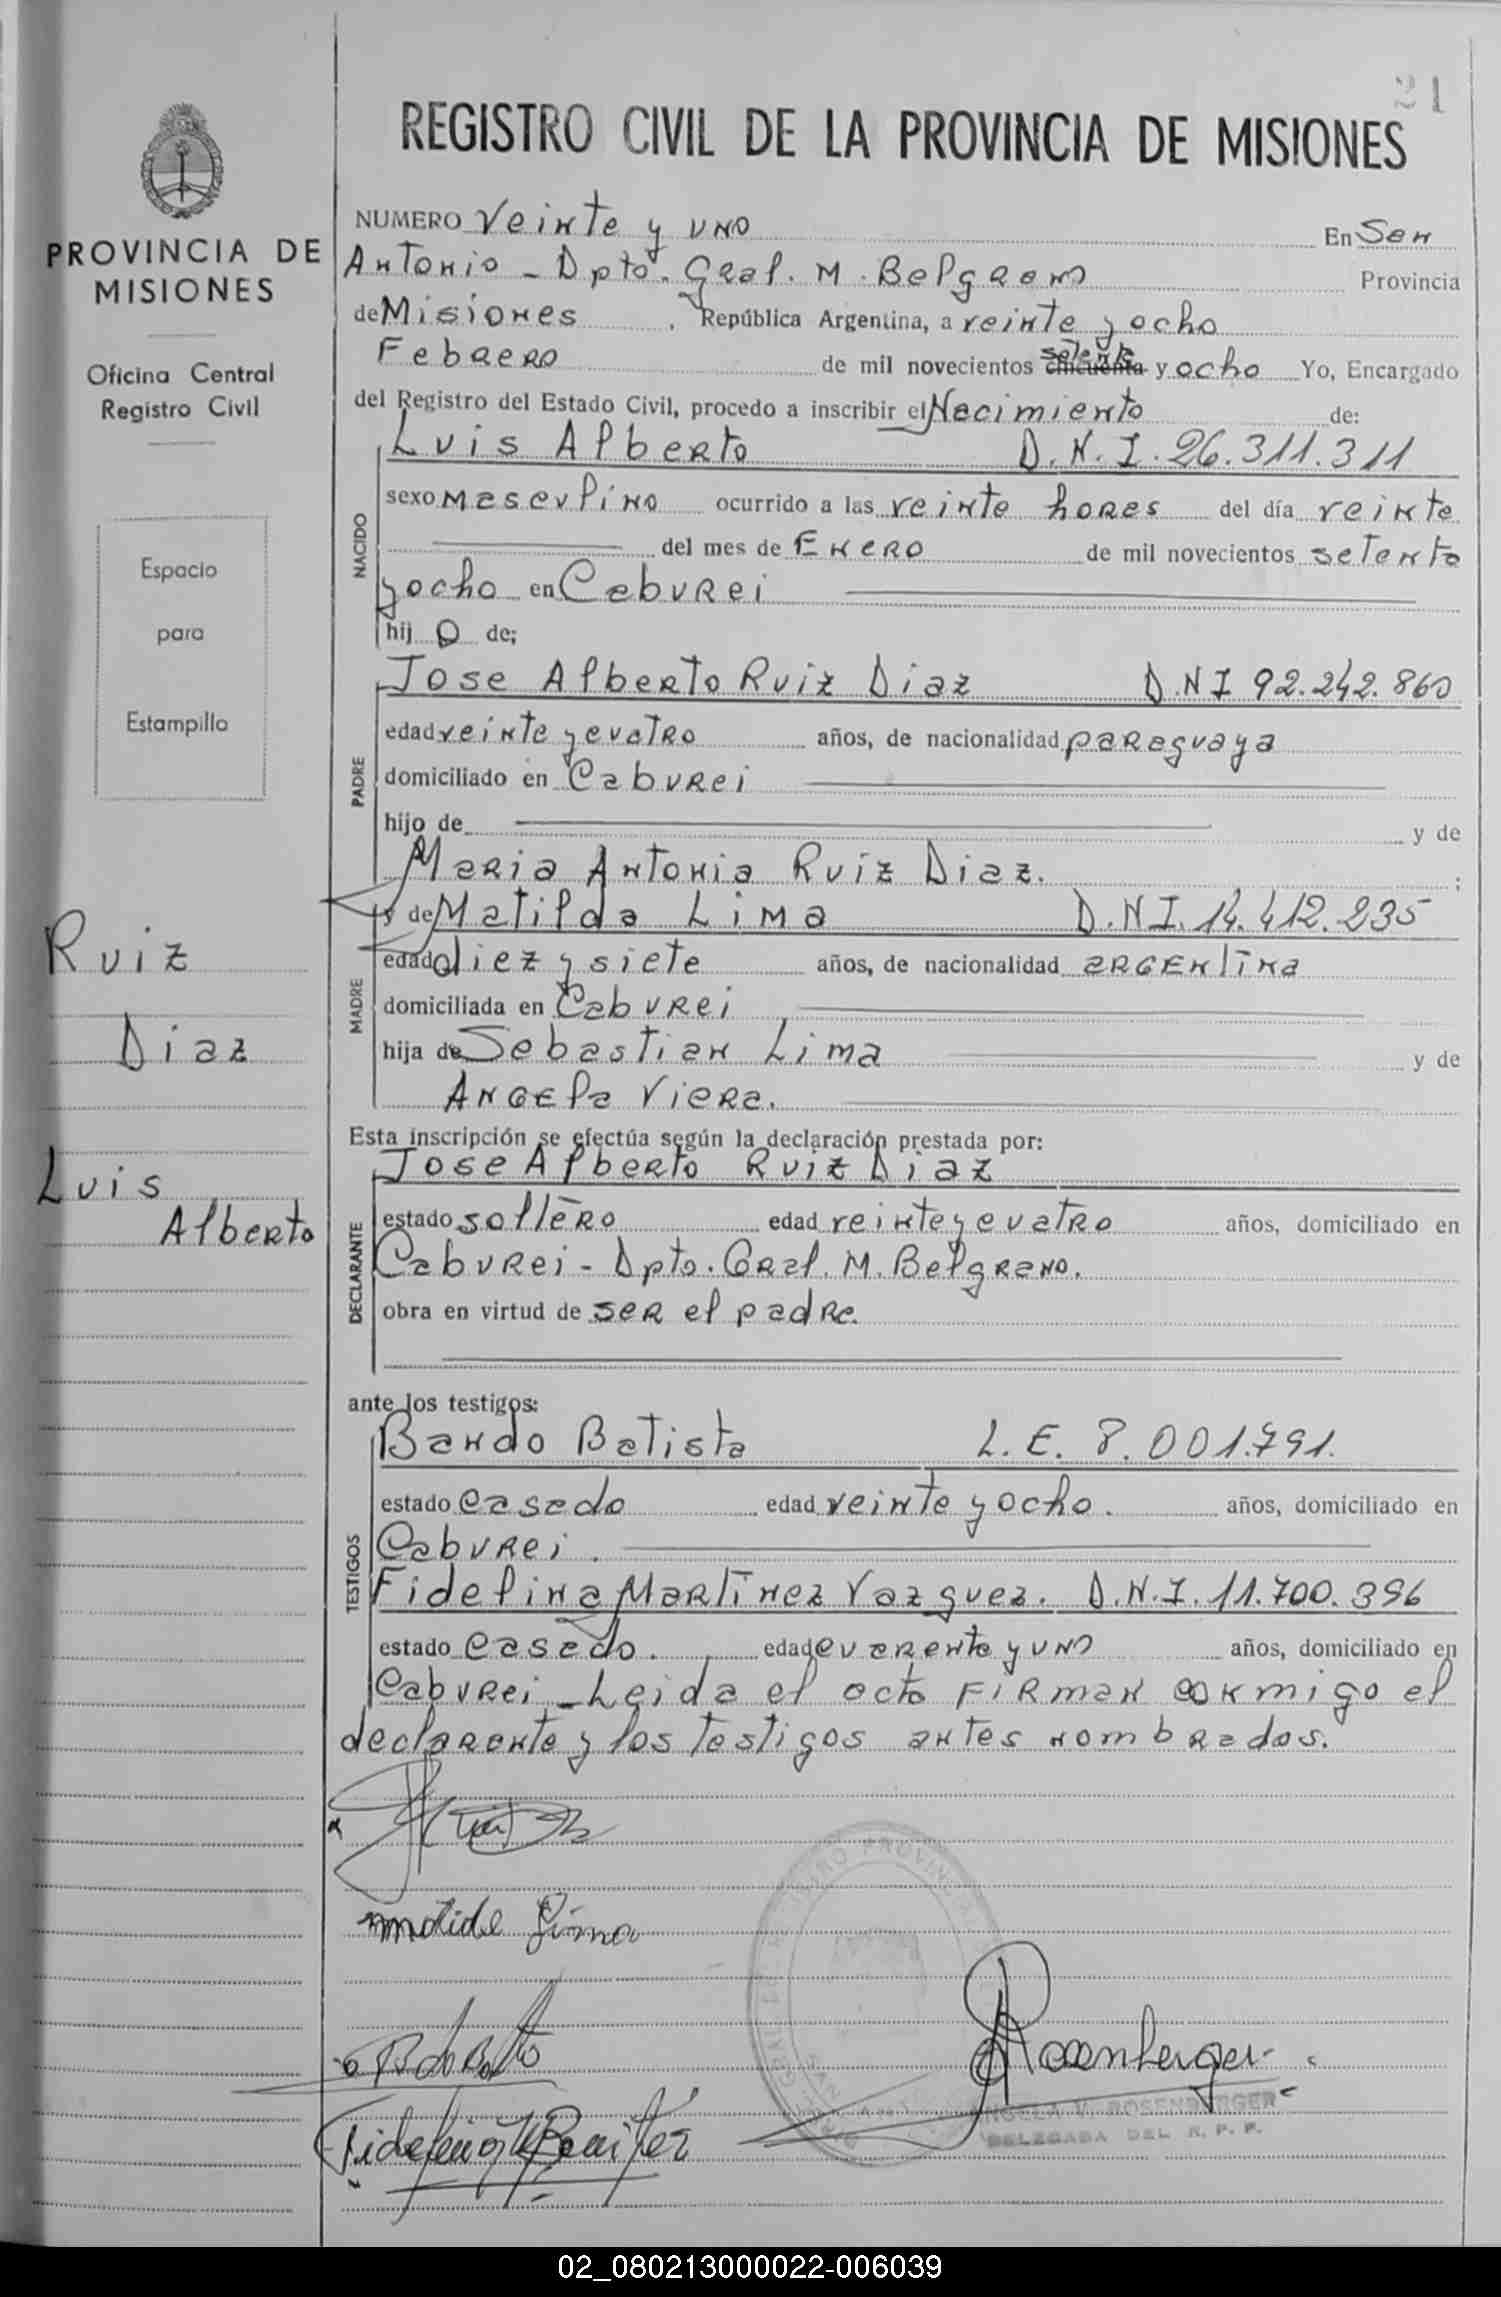 21
REGISTRO CIVIL DE LA PROVINCIA DE MISIONES
PROVINCIA DE
MISIONES
Oficina Central
Registro Civil
Espacio
para
Estampilla
Ruiz
Diaz
Luis
Alberto
NUMERO Veinte y uno En San
Antonio - Dpto. Gral. M. Belgrano Provincia
de Misiones, República Argentina, a veinte y ocho
Febrero de mil novecientos setenta cincuenta y ocho Yo, Encargado
del Registro del Estado Civil, procedo a inscribir el Nacimiento de:
NACIDO
Luis Alberto D.N.I. 26.311.311
sexo masculino ocurrido a las veinte horas del día veinte
del mes de Enero de mil novecientos setenta
y ocho en Caburei
hij o de;
PADRE
Jose Alberto Ruiz Diaz D.N.I 92.242.860
edad veinte y cuatro años, de nacionalidad paraguaya
domiciliado en Caburei
hijo de y de
Maria Antonia Ruiz Diaz. ;
MADRE
y de Matilda Lima D.N.I. 14.412.235
edad diez y siete años, de nacionalidad argentina
domiciliada en Caburei
hija de Sebastian Lima y de
Angela Viera.
Esta inscripción se efectúa según la declaración prestada por:
DECLARANTE
Jose Alberto Ruiz Diaz
estado soltero edad veinte y cuatro años, domiciliado en
Caburei - Dpto. Gral. M. Belgrano.
obra en virtud de ser el padre.
ante los testigos:
TESTIGOS
Bando Batista L.E. 8.001.791.
estado casado edad veinte y ocho. años, domiciliado en
Caburei.
Fidelina Martinez Vazquez. D.N.I. 11.700.396
estado casado. edad cuarenta y uno años, domiciliado en
Caburei - Leida el acta firman conmigo el
declarante y los testigos antes nombrados.
matilde Lima
Rosenberger
ANGELA V. ROSENBERGER
DELEGADA DEL R. P. P.
02_080213000022-006039